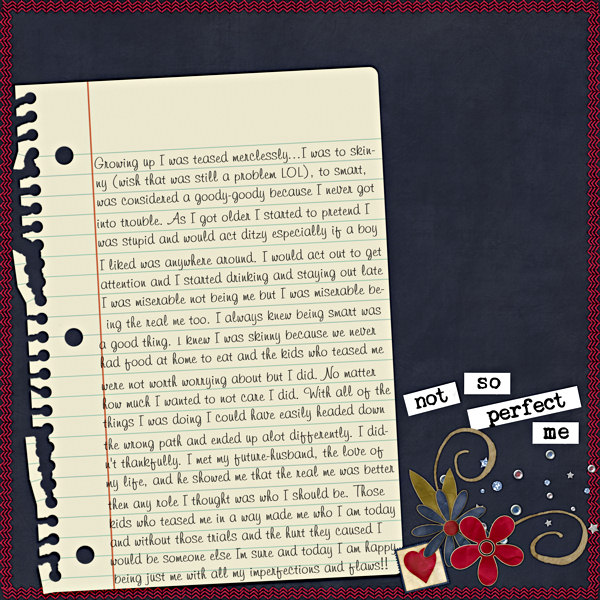 Growing up I was teased merclessly...I was to skin-
ny (wish that was still a problem LOL), to smart,
was considered a goody-goody because I never got
into trouble. As I got older I started to pretend I
was stupid and would act ditzy especially if a boy
I liked was anywhere around. I would act out to get
attention and I started drinking and staying out late
I was miserable not being me but I was miserable be-
ing the real me too. I always knew being smart was
a good thing. I knew I was skinny because we never
had food at home to eat and the kids who teased me
were not worth worrying about but I did. No matter
how much I wanted to not care I did. With all of the
things I was doing I could have easily headed down
the wrong path and ended up alot differently. I did-
n't thankfully. I met my future-husband, the love of
my life, and he showed me that the real me was better
then any role I thought was who I should be. Those
kids who teased me in a way made me who I am today
and without those trials and the hurt they caused I
would be someone else Im sure and today I am happy
being just me with all my imperfections and flaws!!
not so
perfect
me